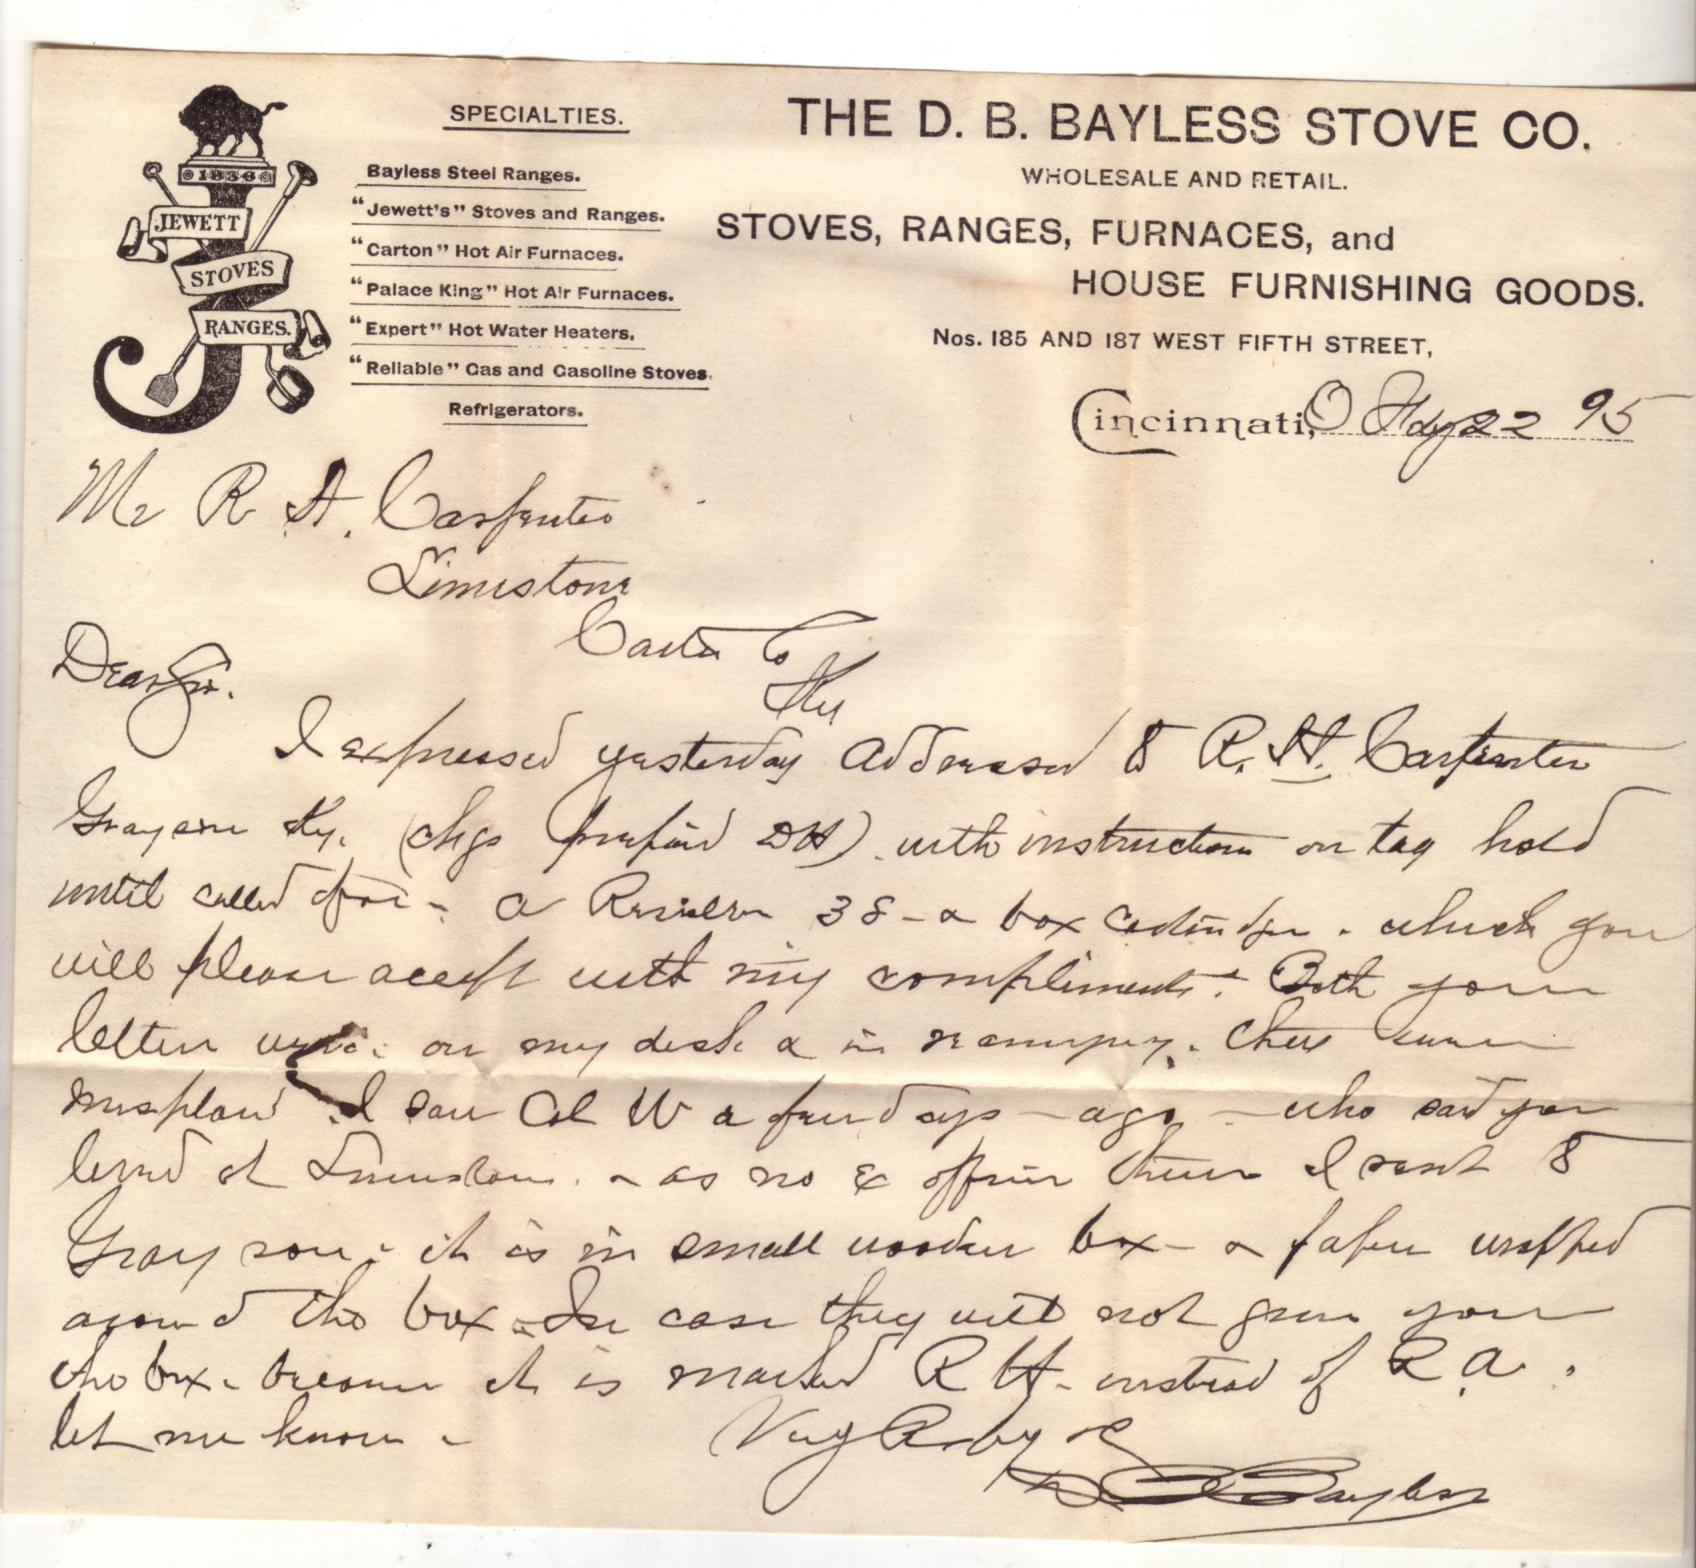 1836
JEWETT
STOVES
RANGES.
SPECIALTIES.
Bayless Steel Ranges.
"Jewett's" Stoves and Ranges.
"Carton" Hot Air Furnaces.
"Palace King" Hot Air Furnaces.
"Expert" Hot Water Heaters.
"Reliable" Gas and Gasoline Stoves.
Refrigerators.
THE D. B. BAYLESS STOVE CO.
WHOLESALE AND RETAIL.
STOVES, RANGES, FURNACES, and
HOUSE FURNISHING GOODS.
Nos. 185 AND 187 WEST FIFTH STREET,
Cincinnati, O 22 95
Mr R. A. Carpenter
Limestone
Carter Co
Ky
Dear Sir.
I expressed yesterday addressed to R. H. Carpenter
Grayson Ky. (chgs prepaid DH) with instructions on tag hold
until called for - a Revolver 38 - & box which you
will please accept with my compliments. Both your
letters were on my desk & in some were
misplaced I saw Col W a few days - ago - who said you
lived at Limestone. - as no Ex office there I sent to
Grayson - it is in small wooden box - & paper wrapped
around the box - In case they will not give you
the box - because it is marked R H - instead of R. A.
let me know -
Very Resby &c
D B Bayless